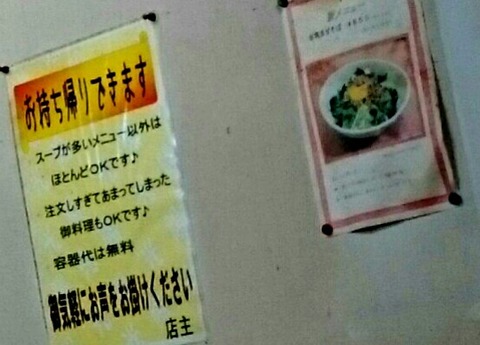 お持ち帰りできます
スープが多いメニュー以外は
ほとんどOKです♪
注文しすぎてあまってしまった
御料理もOKです♪
容器代は無料
御気軽にお声をお掛けください
店主
メニュー